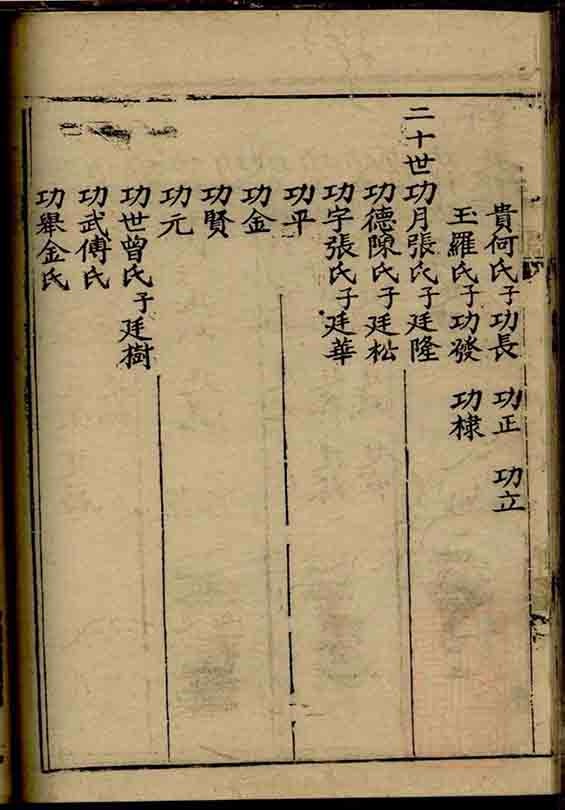 貴何氏子功長 功正 功立
玉羅氏子功發 功棣
二十世功月張氏子廷隆
功德陳氏子廷松
功字張氏子廷華
功平
功金
功賢
功元
功世曾氏子廷樹
功武傅氏
功舉金氏